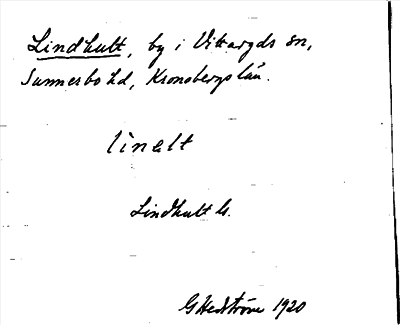 Lindhult, by i Vittaryds sn,
Sunnerbo hd, Kronobergs län.
linelt
Lindhult G.
G Hedström 1920